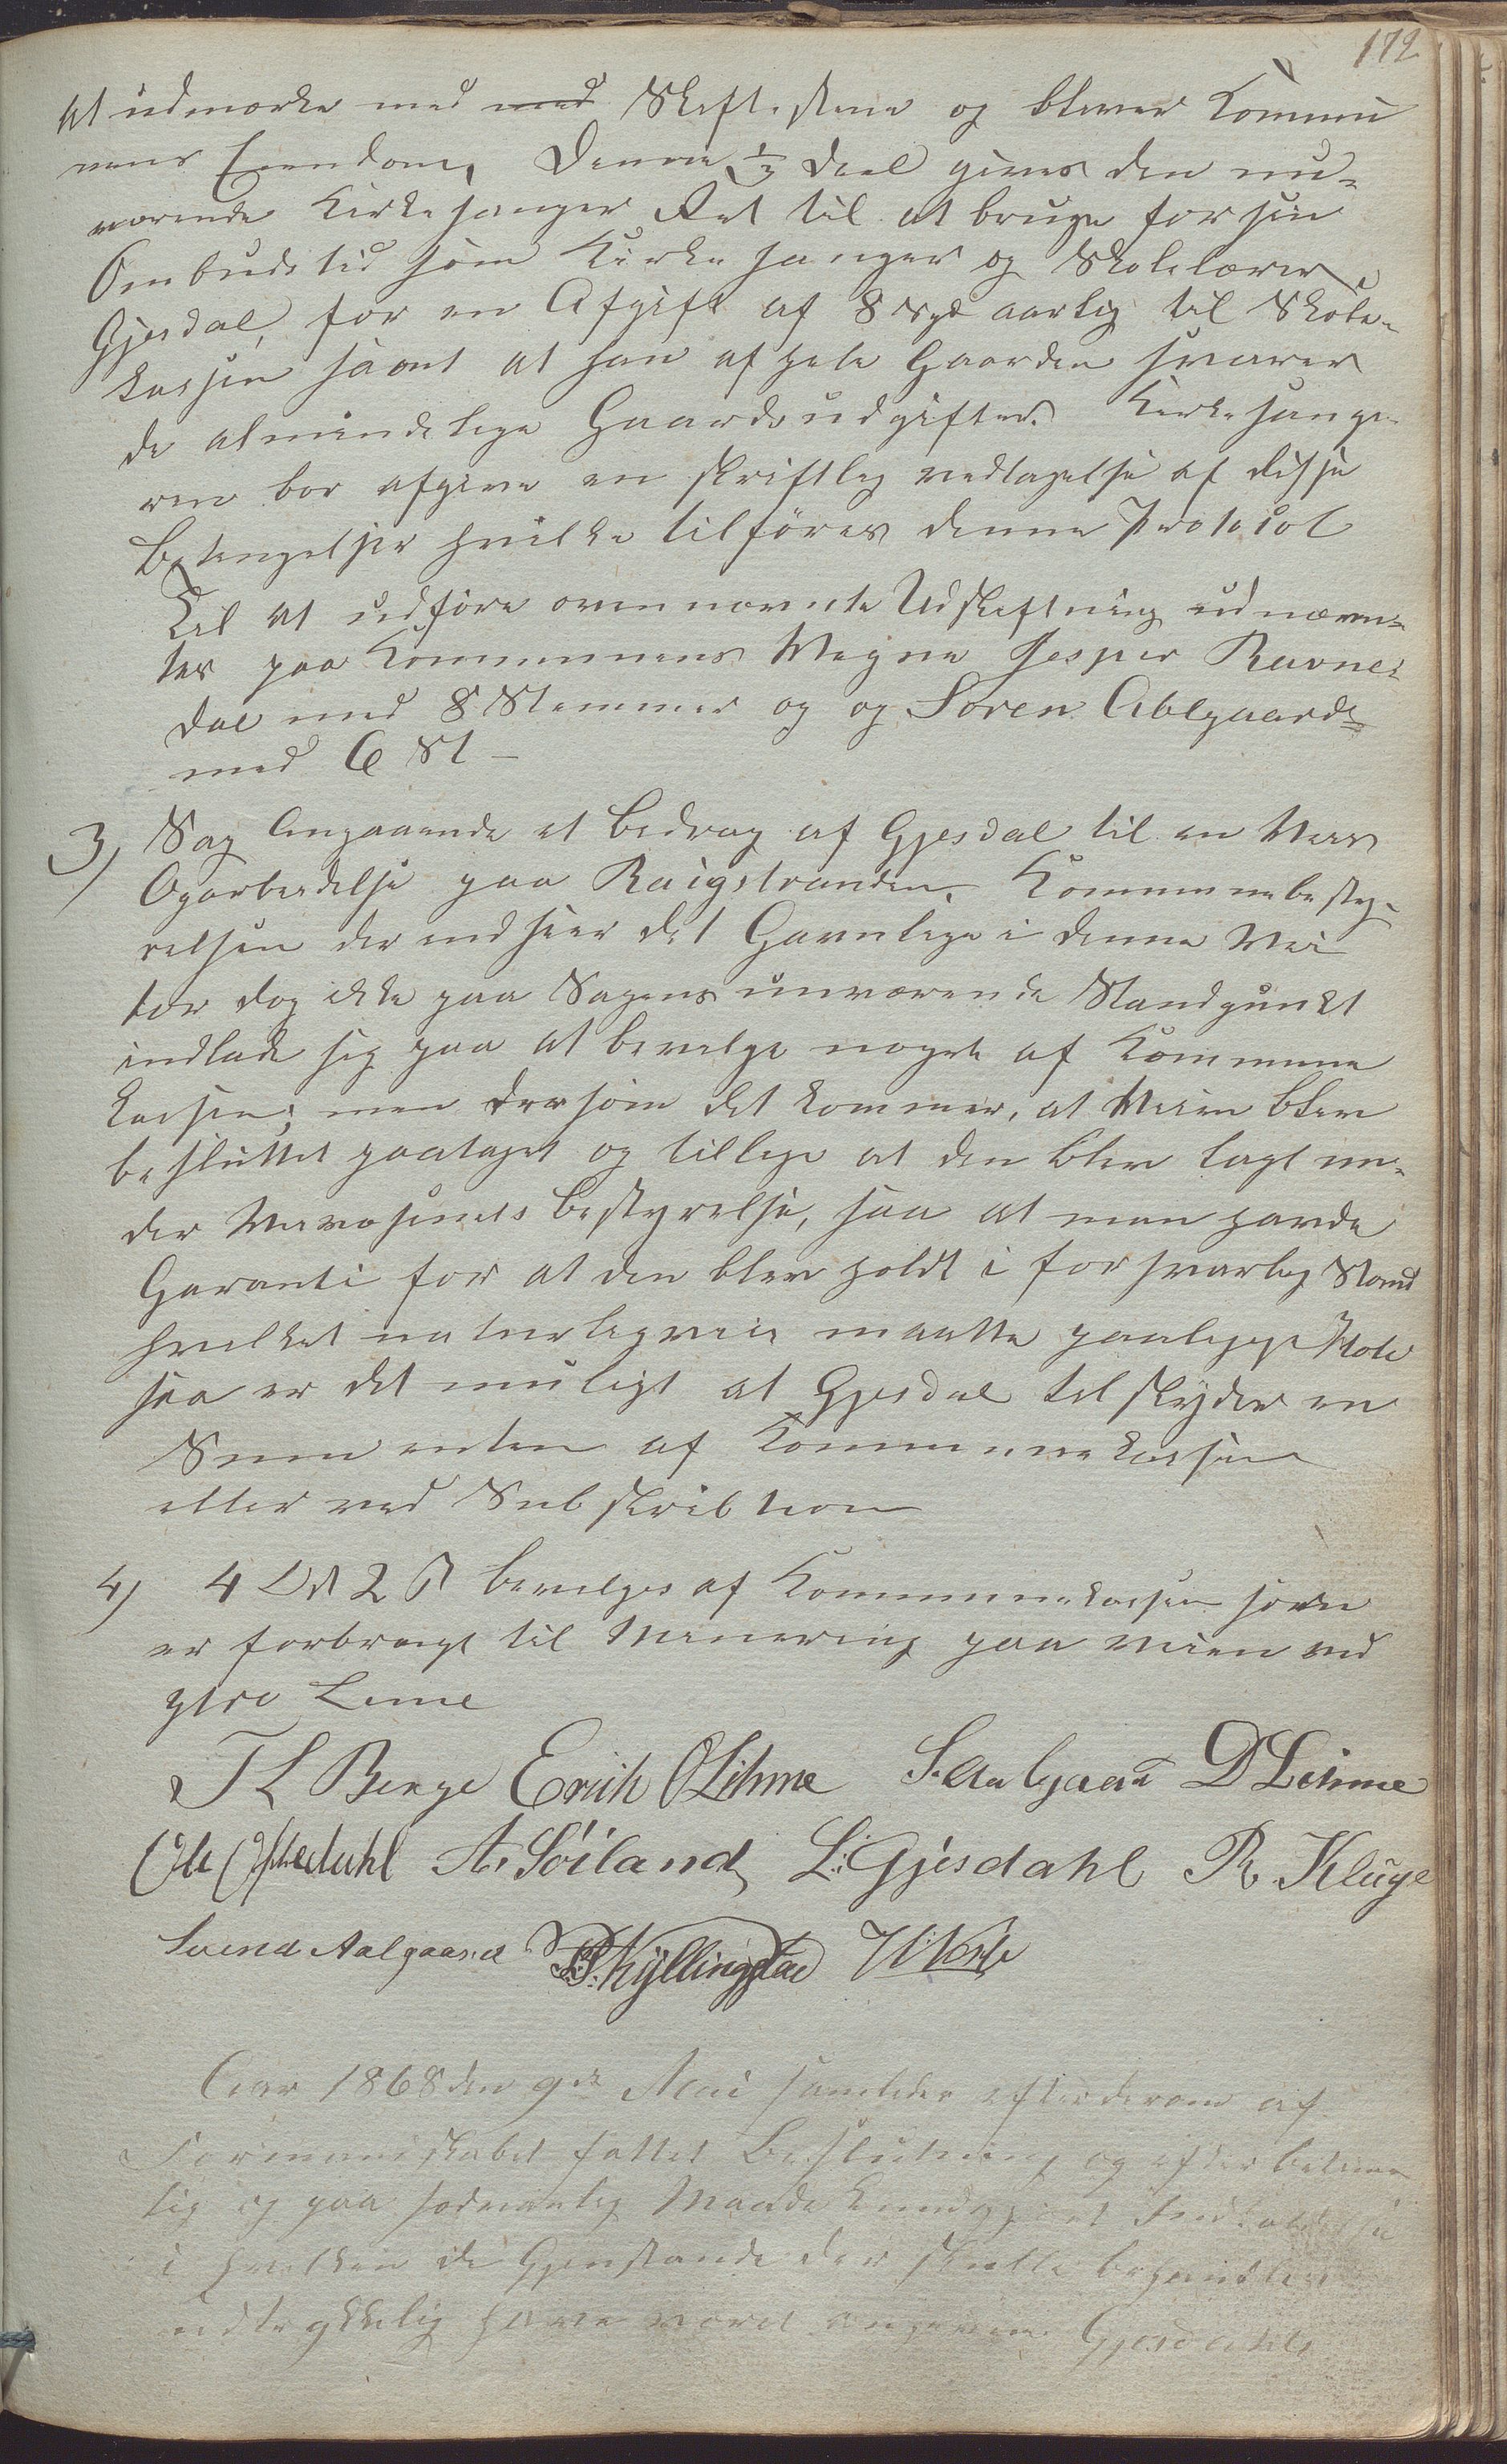 172
at udmærke med med Skiftestene og bliver Kommu
nens Eiendom, Denne 1/3 Deel gives den nu-
værende Kirkesanger Ret til at bruge for sin
Ombudstid som Kirkesanger og Skolelærer i
Gjesdal, for en Afgift af 8 Spd aarlig til Skole-
kassen samt at han af hele Gaarden svarer
de almindelige Gaardsudgifter. Kirkesange-
ren bør afgive en skriftlig vedtagelse af disse
Betingelser hvilke tilføres denne Protocol
Til at udføre ovennævnte Udskiftning udnævn-
tes paa Kommunens Vegne Jesper Ravne-
dal med 8 Stemmer og og Søren Alegaard
med 6 St –
3) Sag Angaaende et Bedrag af Gjesdal til en Veis
Oparbeidelse paa Raigstranden, Kommunebesty-
relsen der indseer det Gavnlige i denne Vei
tør dog ikke paa Sagens nuværende Standpunkt
indlade sig paa at bevilge noget af Kommune
kassen; men dersom det kommer, at Veien blev
besluttet paataget og tillige at den blev lagt un-
der Veivæsenets Bestyrelse, saa at man havde
Garanti for at den blev holdt i forsvarlig Stand
hvilket naturligviis maatte paalægges
saa er det muligt at Gjesdal tilskyder en
Sum enten af Kommunekassen
eller ved Subskribtion
4) 4 Ort 2 ß bevilges af Kommunekassen som
er forbragt til Minering paa veien ved
ytre Lime
T L Berge Erich O Lihme S. Aalgaard D Lihme
Ole Oftedahl A. Söiland L: Gjesdahl R. Kluge
Svend Aalgaard Kyllingstad
Aar 1868 den 9de Mai samledes efter derom af
Formandskabet fattet Beslutning og efter betime
lig og paa sedvanlig Maade kundgjort Indkaldelse
i hvilken de Gjenstande der skulle behandles
udtrykkelig have været angivne Gjesdahls